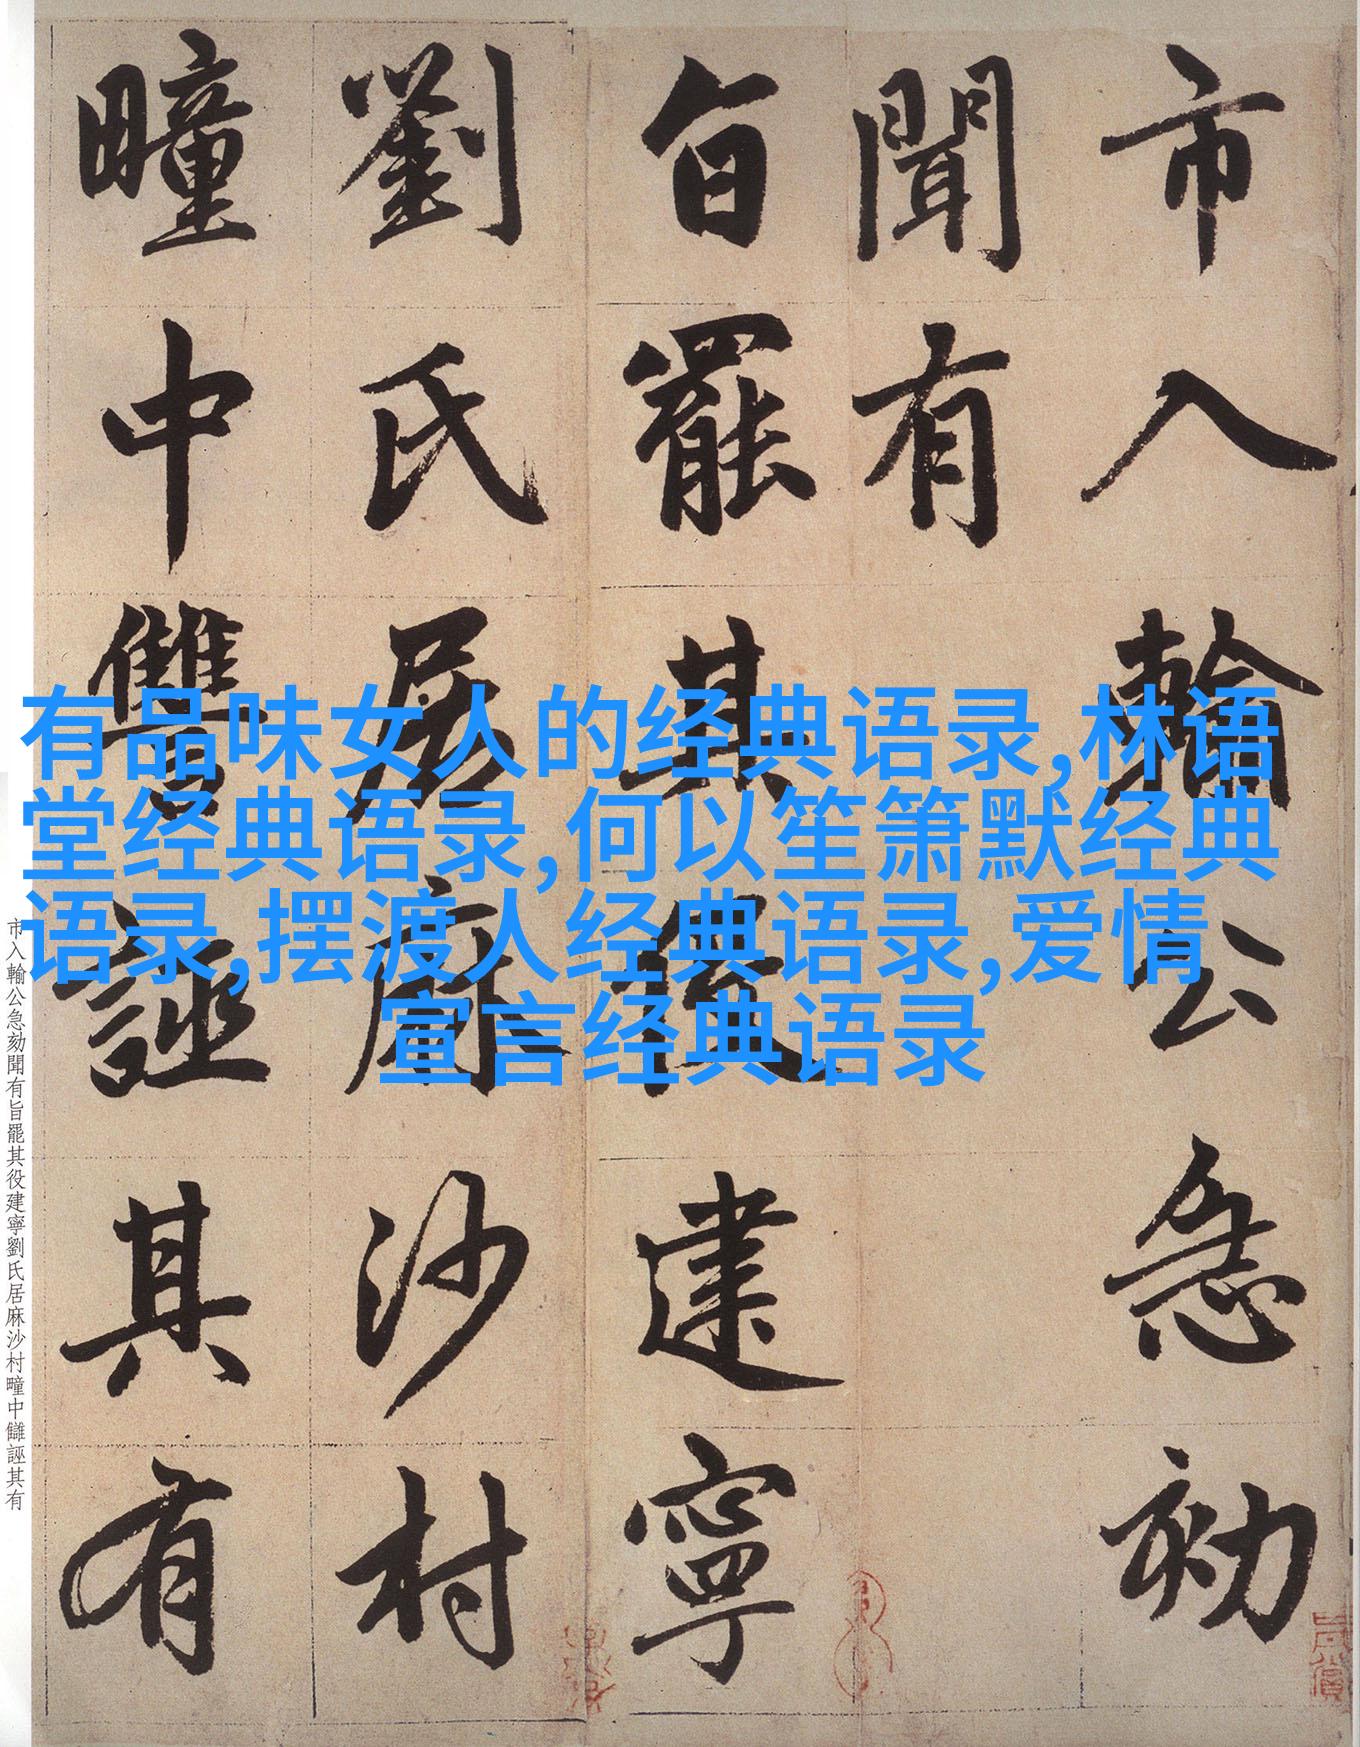 市入輸公急劾
聞有
旨罷其役建寧
劉氏居麻沙村
疃中讎誣其有
有品味女人的经典语录,林语
堂经典语录,何以笙箫默经典
语录,摆渡人经典语录,爱情
宣言经典语录
市入輸公急劾聞有旨罷其役建寧劉氏居麻沙村疃中讎誣其有